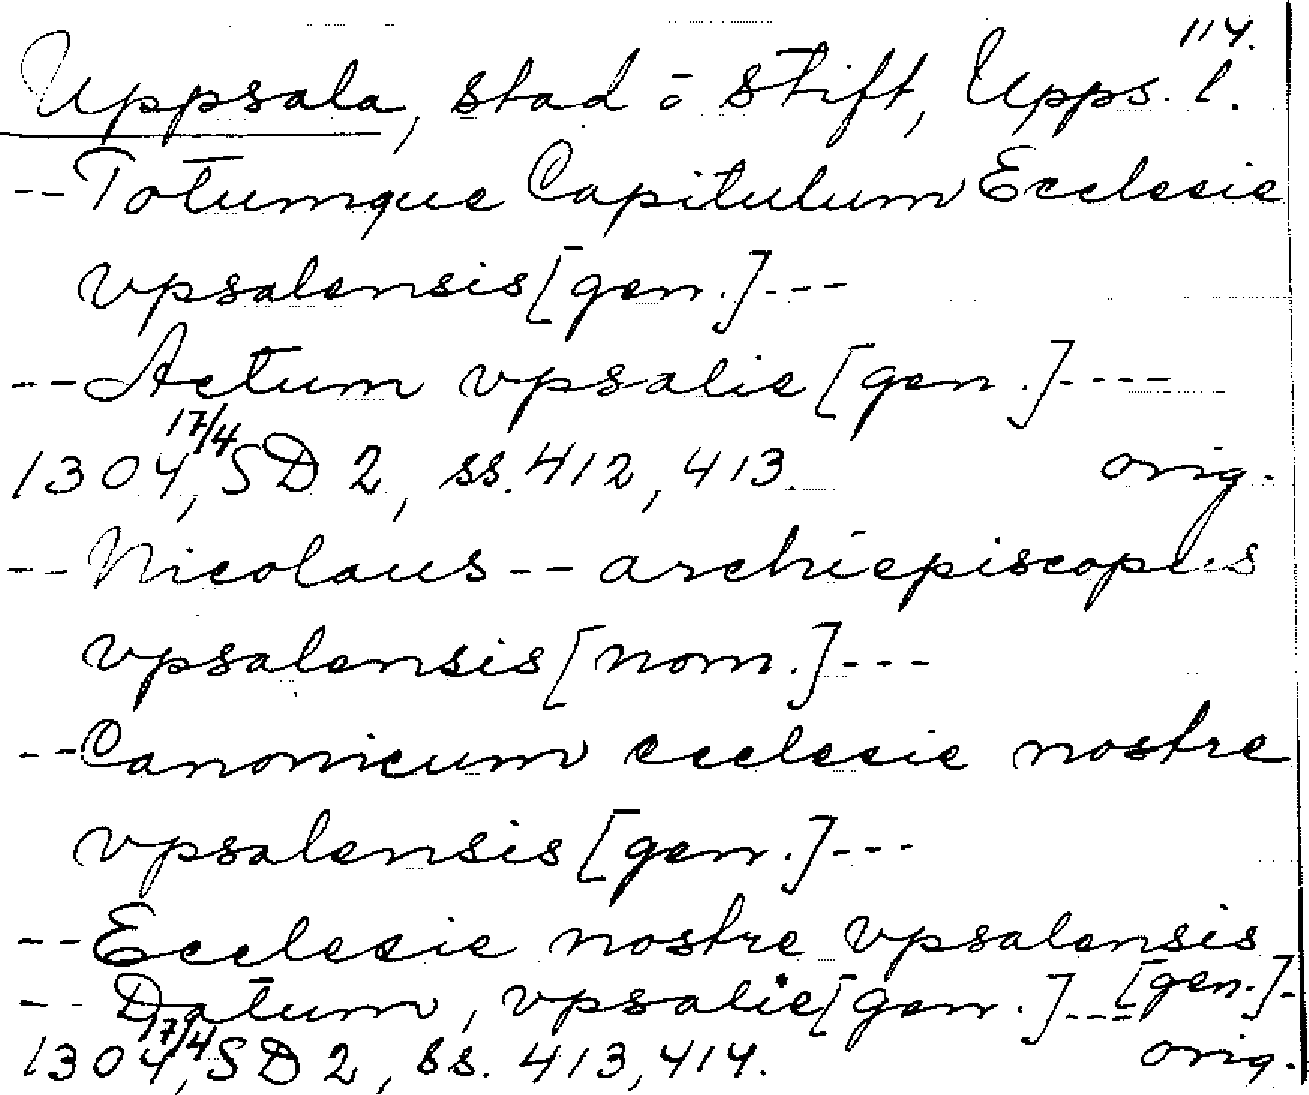 114.
Uppsala, stad o stift, Upps. l.
--Totumque Capitulum Ecclesie
vpsalensis [gen.]---
--Actum vpsalie [gen.]----
1304 17/4, SD 2, ss. 412, 413. orig.
--Nicolaus -- archiepiscopus
vpsalensis [nom.]---
--Canonicum ecclesie nostre
vpsalensis [gen.]---
--Ecclesie nostre vpsalensis
[gen.]-
-- Datum, vpsalie [gen.]---
1304 17/4, SD 2, ss. 413, 414. orig.